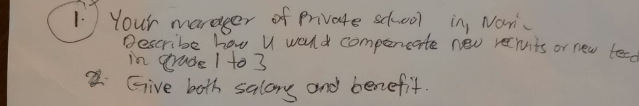 1. Your manager of Private school in,
Describe how U would compensate new recruits or new
in grade 1 to 3
2. Give both salary and benefit.